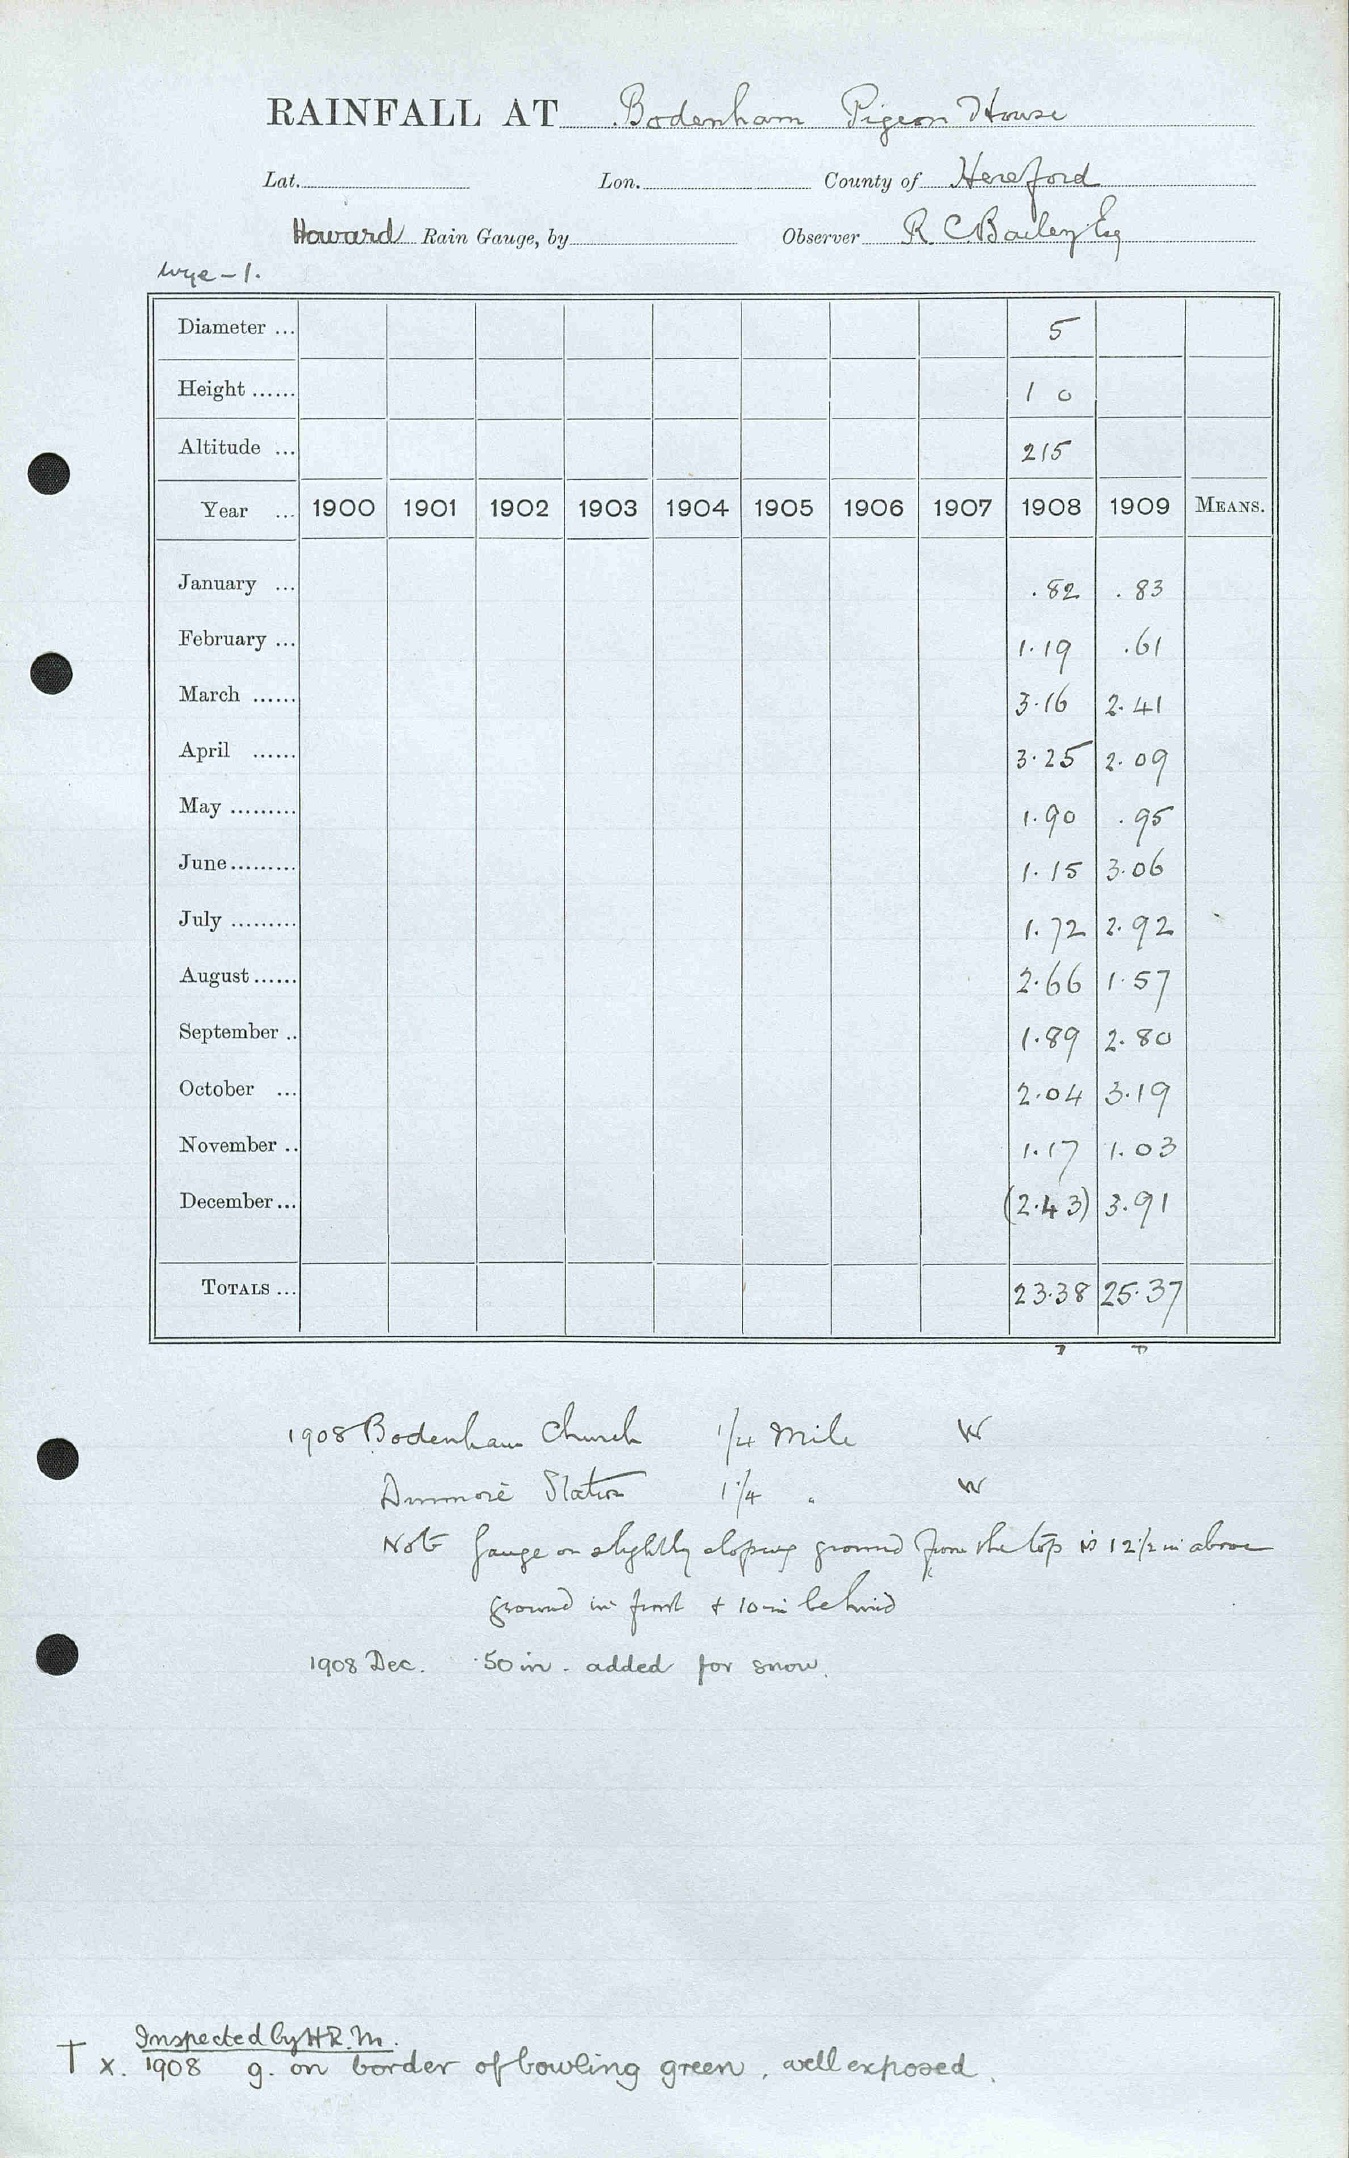 RAINFALL AT Bodenham Pigeon House
Lat. Lon. County of Hereford
Howard Rain Gauge, by Observer R. C. Bailey Esq
Wye - 1.
Diameter ... 5
Height ...... 1 0
Altitude ... 215
Year ... 1900 1901 1902 1903 1904 1905 1906 1907 1908 1909 MEANS.
January ... .82 .83
February ... 1.19 .61
March ...... 3.16 2.41
April ...... 3.25 2.09
May ......... 1.90 .95
June ......... 1.15 3.06
July ......... 1.72 2.92
August ...... 2.66 1.57
September .. 1.89 2.80
October ... 2.04 3.19
November .. 1.17 1.03
December ... (2.43) 3.91
TOTALS ... 23.38 25.37
1908 Bodenham Church 1/4 Mile W
Dinmore Station 1 1/4 " W
Note Gauge on slightly sloping ground from the top is 12 1/2 in above
ground in front & 10 in behind
1908 Dec. .50 in. added for snow.
Inspected by H.R.M.
T x. 1908 g. on border of bowling green, well exposed.